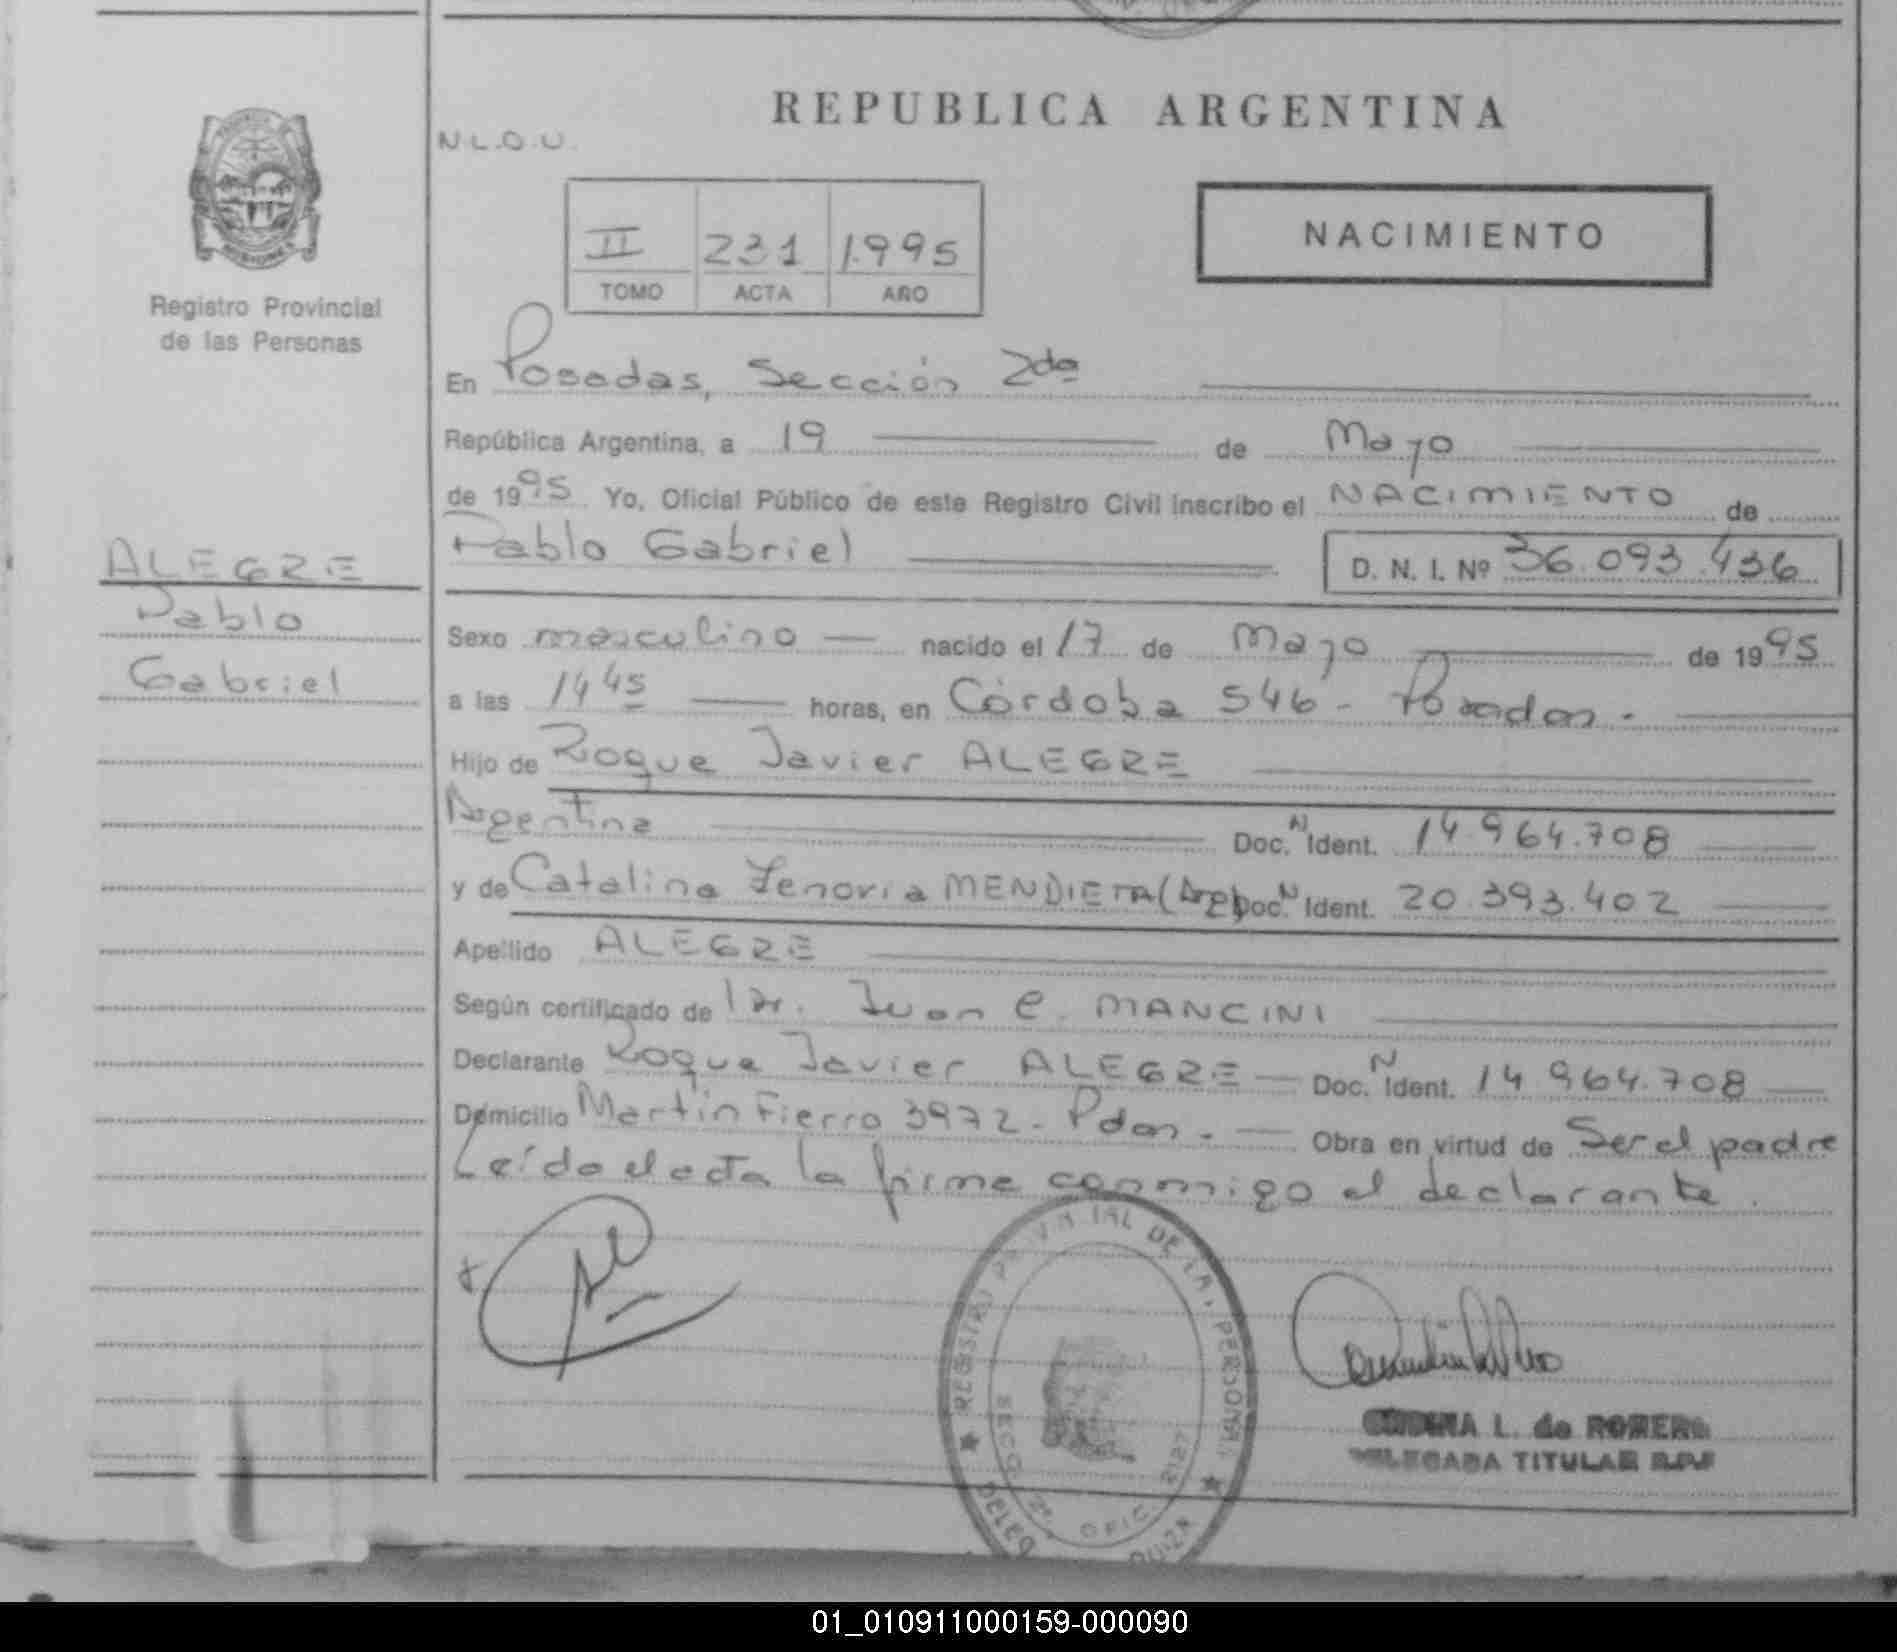 REPUBLICA ARGENTINA
N.L.O.U.
II 231 1.995
TOMO ACTA AÑO
NACIMIENTO
Registro Provincial
de las Personas
En Posadas, Sección 2da
República Argentina, a 19 de Mayo
de 1995 Yo, Oficial Público de este Registro Civil inscribo el NACIMIENTO de
Pablo Gabriel D. N. I. Nº 36.093.436
ALEGRE
Pablo
Gabriel
Sexo masculino nacido el 17 de Mayo de 1995
a las 14 45 horas, en Córdoba 546 - Posadas -
Hijo de Roque Javier ALEGRE
Argentina Doc. N Ident. 14.964.708
y de Catalina MENDIETA (Arg) Doc. N Ident. 20.393.402
Apellido ALEGRE
Según certificado de Dr. Juan C. MANCINI
Declarante Roque Javier ALEGRE Doc. N Ident. 14.964.708
Domicilio Martín Fierro 3972 - Pdas. Obra en virtud de Ser el padre
Leído el acta la firma conmigo el declarante.
REGISTRO PROVINCIAL DE LAS PERSONAS
SECC. 2ª OFIC.
L. de ROMERO
DELEGADA TITULAR R.P.P
01_010911000159-000090